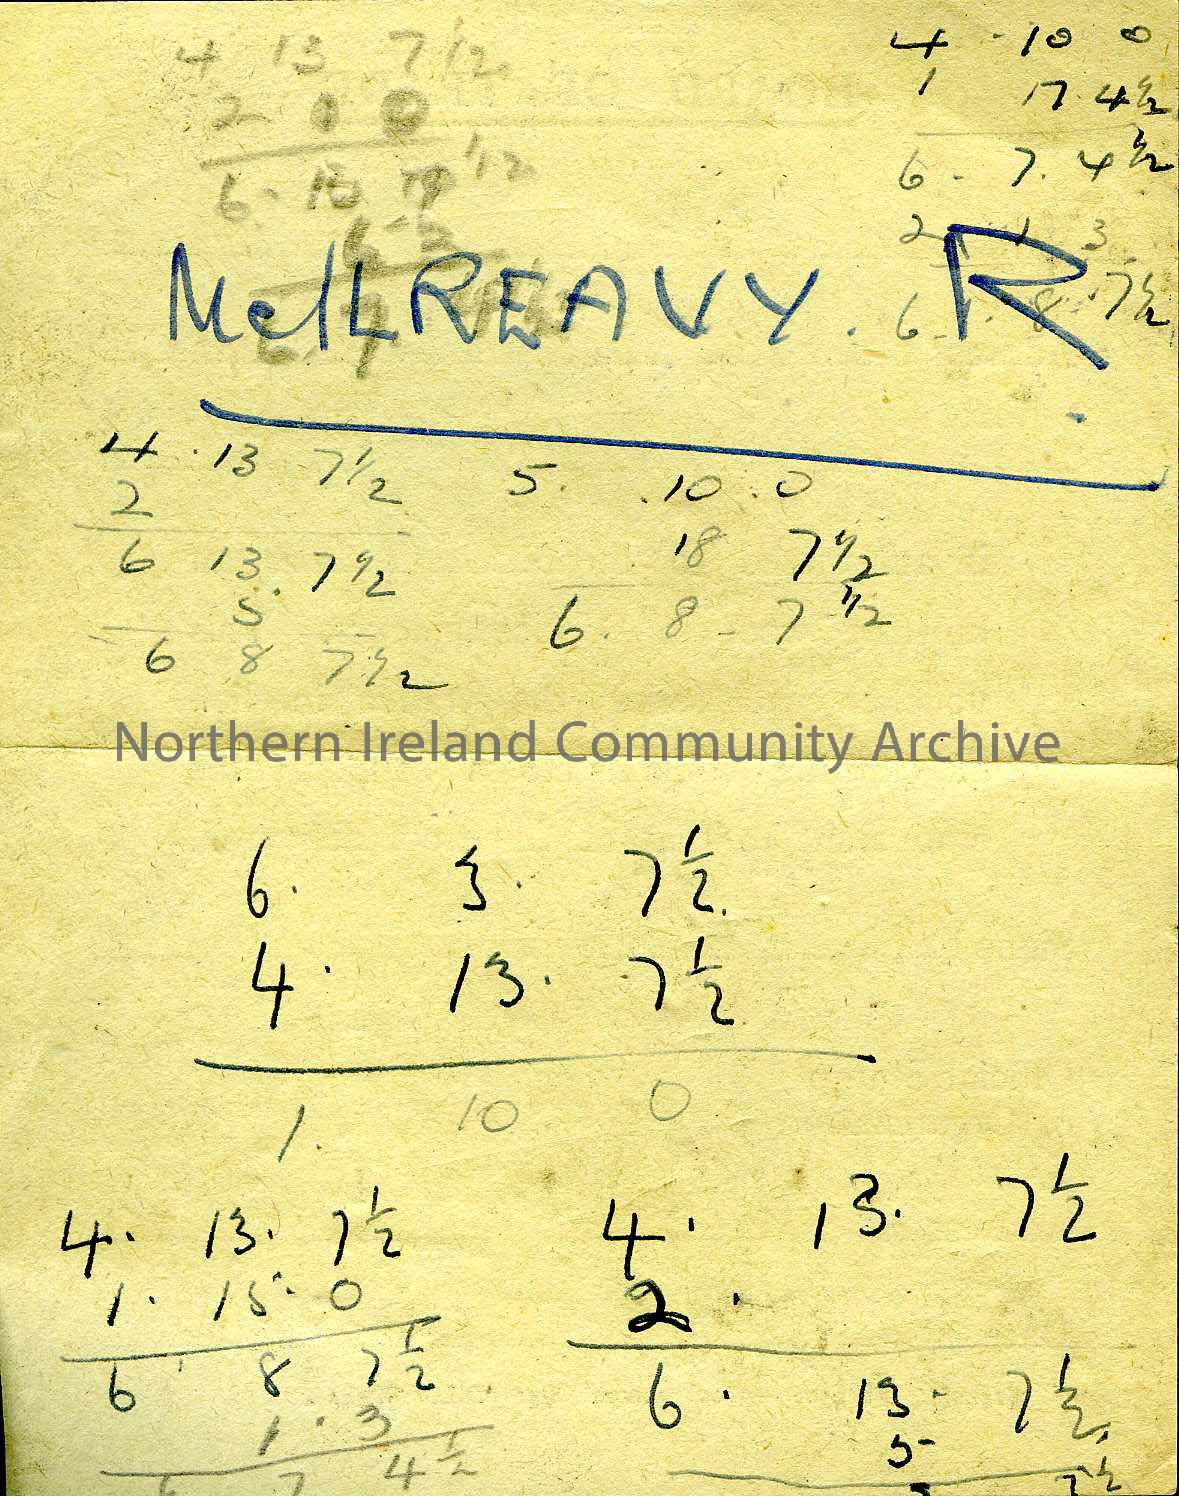 4 13 7 1/2
2 0 0
6 . 13 7 1/2
4 . 10 0
1 17 . 4 1/2
6 . 7 . 4 1/2
2 1 3
6 . 8 . 7 1/2
McILREAVY . R
4 . 13 7 1/2
2
6 13 . 7 1/2
5
6 8 7 1/2
5 . . 10 . 0
18 7 1/2
6 . 8 - 7 1/2
Northern Ireland Community Archive
6 . 3 . 7 1/2
4 . 13 . 7 1/2
1 . 10 0
4 . 13 . 7 1/2
1 . 15 . 0
6 8 7 1/2
1 . 3
6 7 4 1/2
4 . 13 . 7 1/2
2 .
6 . 13 . 7 1/2
5